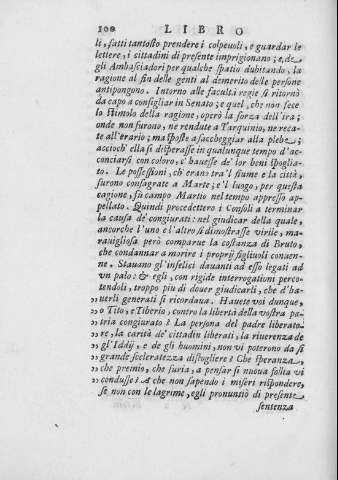 100 LIBRO
li, fatti tantosto prendere i colpeuoli, e guardar le
lettere, i cittadini di presente imprigionano; e, de
gli Ambasciadori per qualche spatio dubitando, la
ragione al fin delle genti al demerito delle persone
antipongono. Intorno alle facultà regie si ritornò
da capo a consigliar in Senato; e quel, che non fece
lo stimolo della ragione, operò la forza dell'ira;
onde non furono, ne rendute a Tarquinio, ne reca-
te all'erario; ma sposte a saccheggiar alla plebe;
accioch' ella si disperasse in qualunque tempo d'ac-
conciarsi con coloro, c'hauesse de' lor beni spoglia-
to. Le possessioni, ch'eran tra'l fiume e la città,
furono consagrate a Marte; e'l luogo, per questa
cagione, fu campo Martio nel tempo appresso ap-
pellato. Quindi procedettero i Consoli a terminar
la causa de' congiurati: nel giudicar della quale,
ancorche l'uno e l'altro si dimostrasse virile, ma-
rauigliosa però comparue la costanza di Bruto,
che condannar a morire i proprij figliuoli conuen-
ne. Stauano gl'infelici dauanti ad esso legati ad
vn palo: & egli, con rigide interrogationi perco-
tendoli, troppo piu di douer giudicarli, che d'ha-
„ uerli generati si ricordaua. Hauete voi dunque,
„ o Tito, e Tiberio, contro la libertà della vostra pa-
„ tria congiurato? La persona del padre liberato-
„ re, la carità de' cittadin liberati, la riuerenza de
„ gl'Iddij, e de gli huomini, non vi poterono da sì
„ grande sceleratezza distogliere? Che speranza,
„ che premio, che furia, a pensar sì nuoua follia vi
„ condusse? A che non sapendo i miseri rispondere,
se non con le lagrime, egli pronuntiò di presente
sentenza